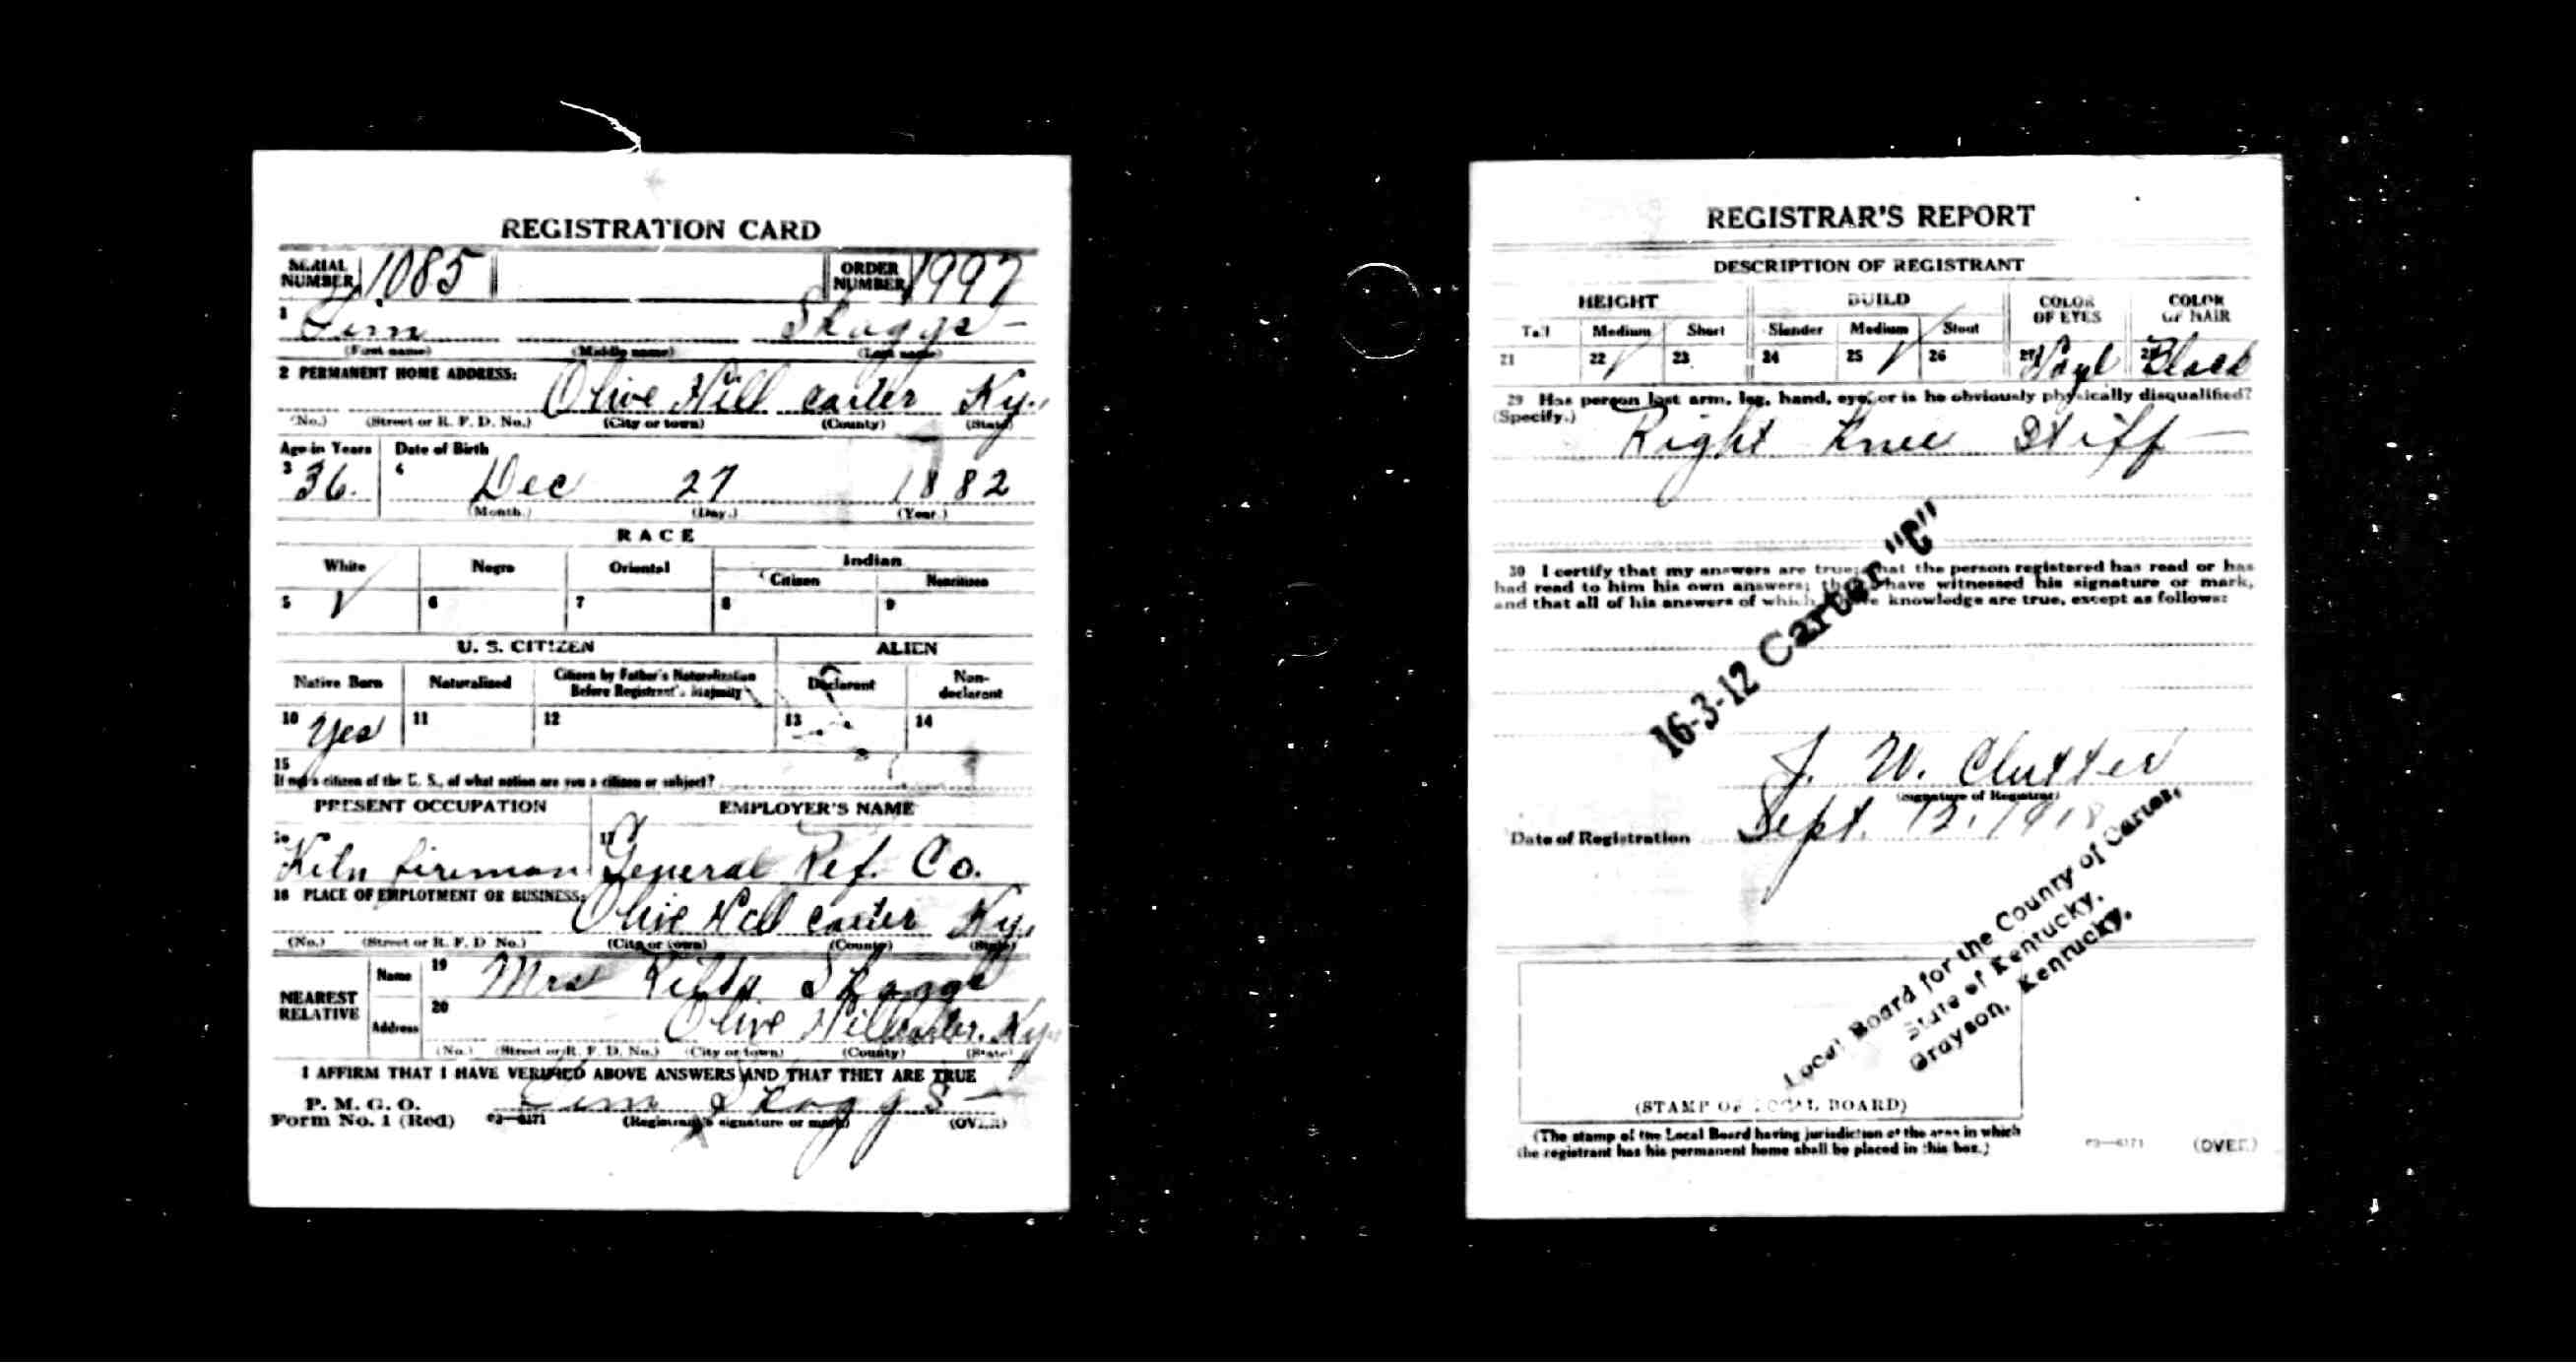 REGISTRATION CARD
SERIAL NUMBER 1085 ORDER NUMBER 1997
1 Lim Skaggs
(First name) (Middle name) (Last name)
2 PERMANENT HOME ADDRESS: Olive Hill Carter Ky.
(No.) (Street or R. F. D. No.) (City or town) (County) (State)
Age in Years Date of Birth
3 36. 4 Dec 27 1882
(Month.) (Day.) (Year.)
RACE
White Negro Oriental Indian
Citizen Noncitizen
5 ✓ 6 7 8 9
U. S. CITIZEN ALIEN
Native Born Naturalized Citizen by Father's Naturalization Before Registrant's Majority Declarant Non-declarant
10 Yes 11 12 13 14
15
If not a citizen of the U. S., of what nation are you a citizen or subject?
PRESENT OCCUPATION EMPLOYER'S NAME
16 Kiln fireman 17 General Ref. Co.
18 PLACE OF EMPLOYMENT OR BUSINESS: Olive Hill Carter Ky.
(No.) (Street or R. F. D. No.) (City or town) (County) (State)
NEAREST RELATIVE Name 19 Mrs Skaggs
Address 20 Olive Hill Carter. Ky
(No.) (Street or R. F. D. No.) (City or town) (County) (State)
I AFFIRM THAT I HAVE VERIFIED ABOVE ANSWERS AND THAT THEY ARE TRUE
P. M. G. O.
Form No. 1 (Red) 03—6171 Lim Skaggs
(Registrant's signature or mark) (OVER)
REGISTRAR'S REPORT
DESCRIPTION OF REGISTRANT
HEIGHT BUILD COLOR OF EYES COLOR OF HAIR
Tall Medium Short Slender Medium Stout
21 22 ✓ 23 24 25 ✓ 26 27 Hazl 28 Black
29 Has person lost arm, leg, hand, eye, or is he obviously physically disqualified?
(Specify.) Right Knee Stiff
30 I certify that my answers are true; that the person registered has read or has
had read to him his own answers; that I have witnessed his signature or mark,
and that all of his answers of which I have knowledge are true, except as follows:
16-3-12 Carter "C"
J. W. Clutter
(Signature of Registrar)
Date of Registration Sept. 12. 1918
Local Board for the County of Carter,
State of Kentucky,
Grayson, Kentucky.
(STAMP OF LOCAL BOARD)
(The stamp of the Local Board having jurisdiction of the area in which
the registrant has his permanent home shall be placed in this box.)
03—6171 (OVER)